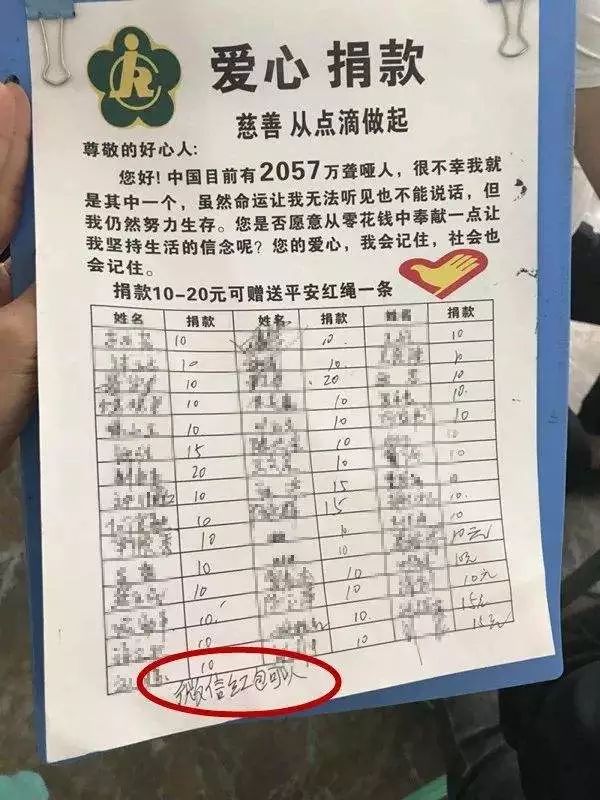 爱心 捐款
慈善 从点滴做起
尊敬的好心人:
您好! 中国目前有2057万聋哑人，很不幸我就
是其中一个，虽然命运让我无法听见也不能说话，但
我仍然努力生存。您是否愿意从零花钱中奉献一点让
我坚持生活的信念呢？您的爱心，我会记住，社会也
会记住。
捐款10-20元可赠送平安红绳一条
姓名 捐款 姓名 捐款 姓名 捐款
10 10 10
10 10 10
10 20 10
10 10 10
10 10 10
15 10
20 10
10 15
10 15 10
10 10 10元
10 10元
10 10 10元
10 10 15元
10 10 15元
10
微信红包可以